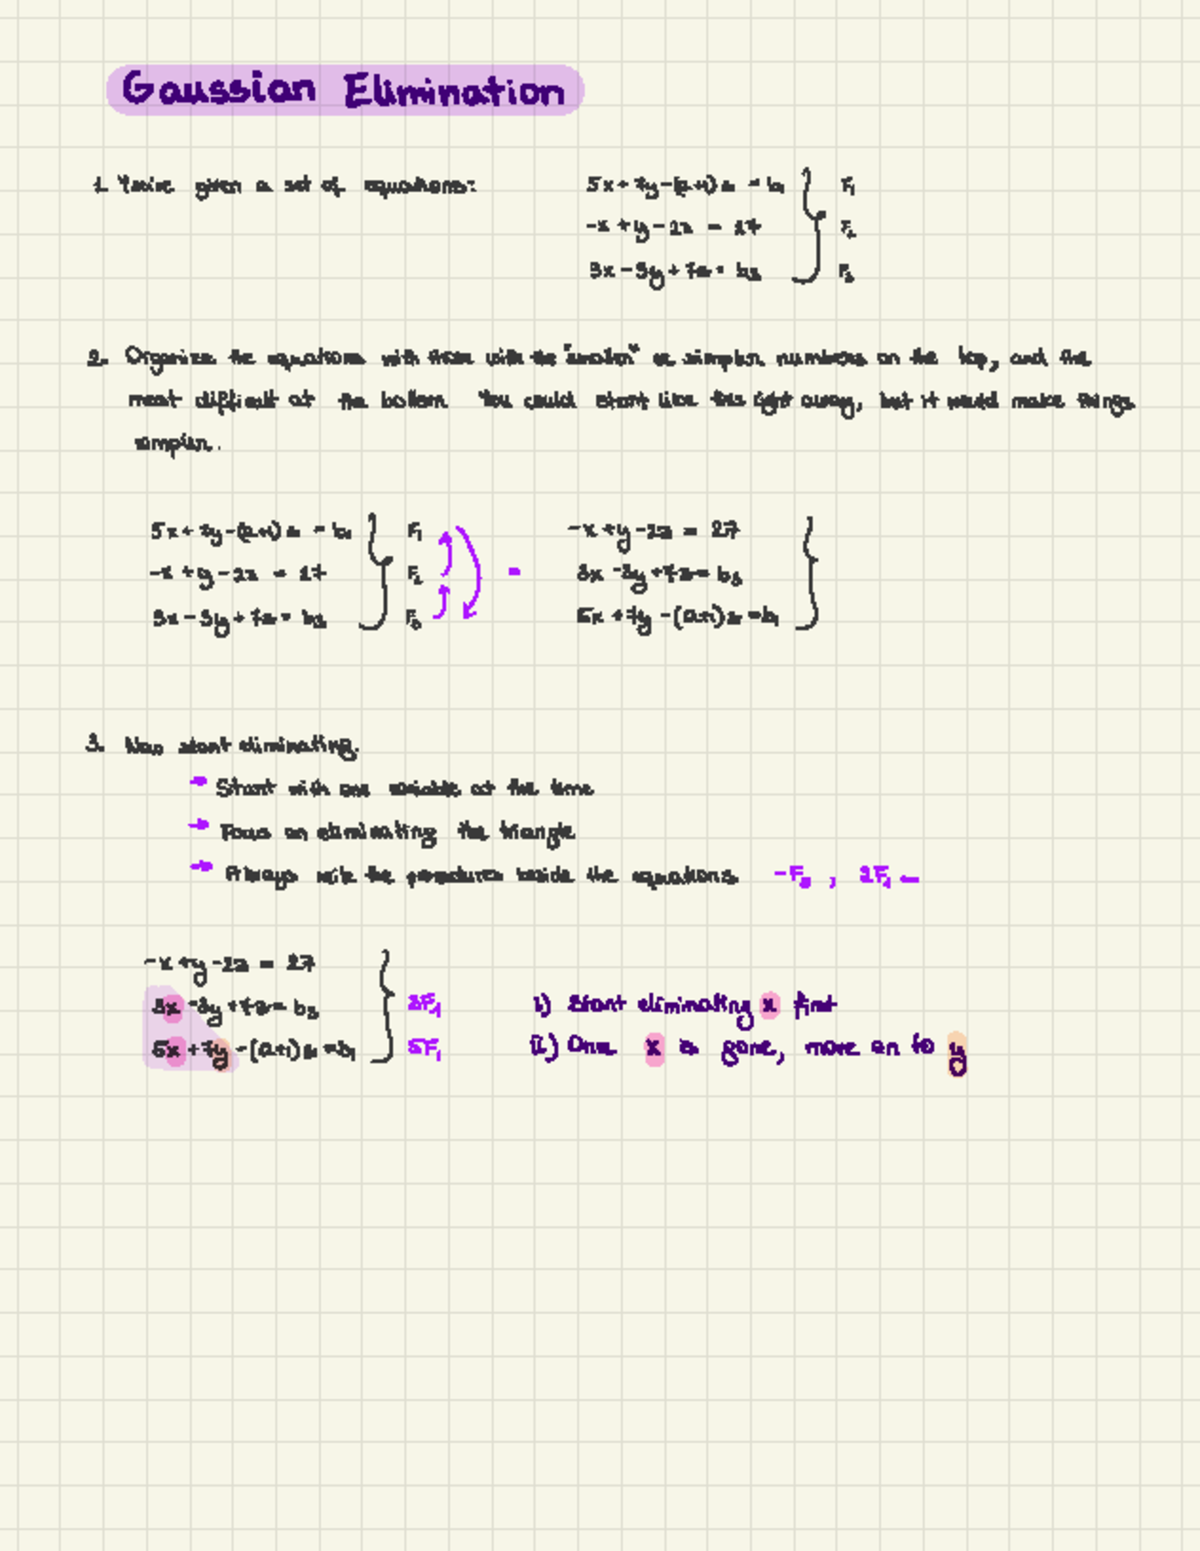 Gaussian Elimination
1. You're given a set of equations:
5x + 7y - (a+1)z = b₁ F₁
-x + y - 2z = 27 F₂
3x - 3y + 7z = b₃ F₃
2. Organize the equations with those with the "smaller" or simpler numbers on the top, and the
most difficult at the bottom. You could start like this right away, but it would make things
simpler.
5x + 7y - (a+1)z = b₁ F₁
-x + y - 2z = 27 F₂ =
3x - 3y + 7z = b₃ F₃
-x + y - 2z = 27
3x - 3y + 7z = b₃
5x + 7y - (a+1)z = b₁
3. Now start eliminating.
→ Start with one variable at the time
→ Focus on eliminating the triangle
→ Always write the procedures beside the equations -F₃, 2F₁ —
-x + y - 2z = 27
3x - 3y + 7z = b₃ 3F₁
5x + 7y - (a+1)z = b₁ 5F₁
i) Start eliminating x first
ii) Once x is gone, move on to y